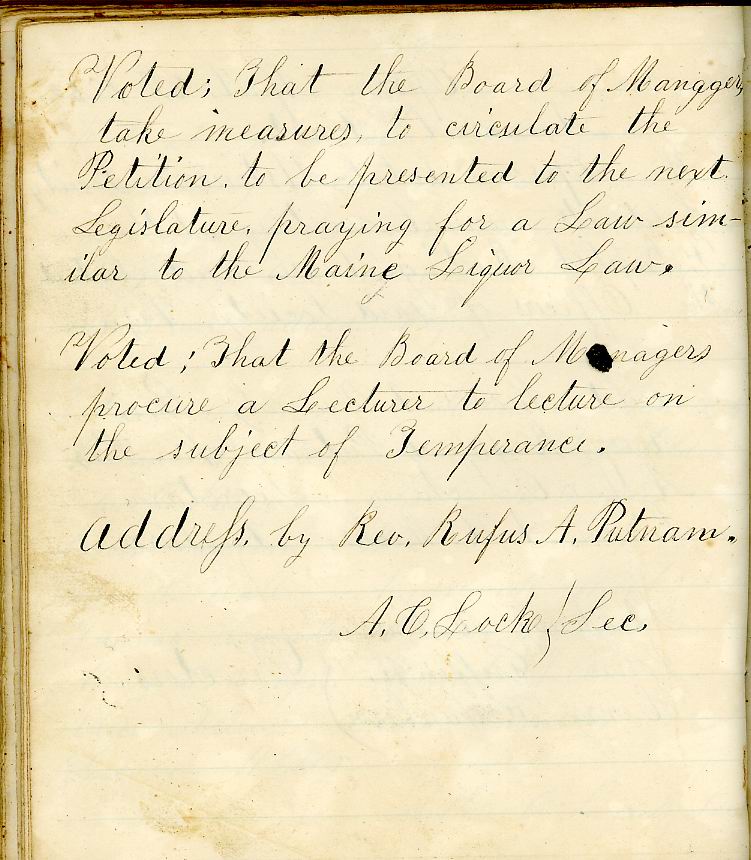 Voted; That the Board of Manggers
take measures, to circulate the
Petition, to be presented to the next
Legislature, praying for a Law sim-
ilar to the Maine Liquor Law.
Voted; That the Board of Managers
procure a Lecturer to lecture on
the subject of Temperance.
Address, by Rev. Rufus A. Putnam.
A. C. Lock } Sec.